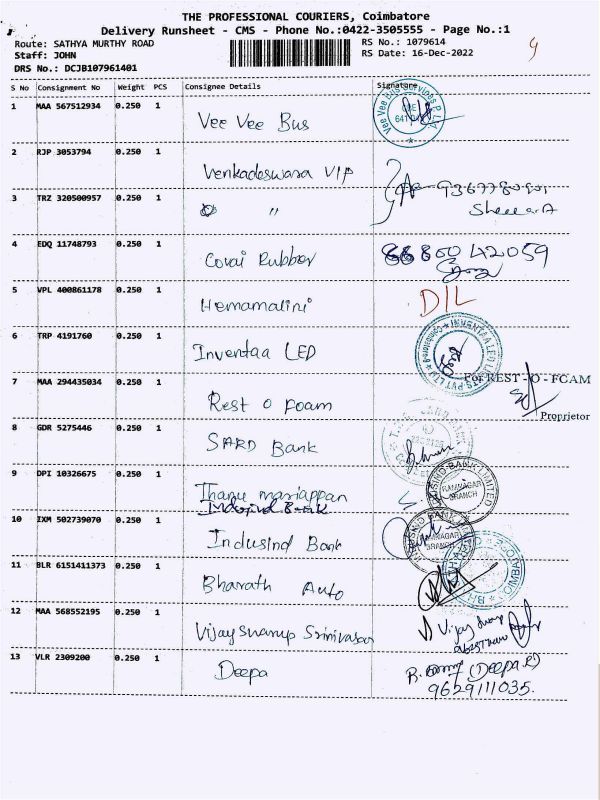 THE PROFESSIONAL COURIERS, Coimbatore
Delivery Runsheet - CMS - Phone No.:0422-3505555 - Page No.:1
Route: SATHYA MURTHY ROAD
RS No.: 1079614
Staff: JOHN
RS Date: 16-Dec-2022
DRS No.: DCJB107961401
S No Consignment No Weight PCS Consignee Details Signature
1 MAA 567512934 0.250 1 Vee Vee Bus
2 RJP 3053794 0.250 1 Venkadeswara VIP
3 TRZ 320500957 0.250 1 "
4 EDQ 11748793 0.250 1 Covai Rubber 8680042059
5 VPL 400861178 0.250 1 Hemamalini D/L
6 TRP 4191760 0.250 1 Inventaa LED
7 MAA 294435034 0.250 1 Rest O Foam
For REST - O - FOAM
Proprietor
8 GDR 5275446 0.250 1 SARD Bank
9 DPI 10326675 0.250 1 Thanu mariappan
Indusind Bank
RAMNAGAR
BRANCH
10 IXM 502739070 0.250 1 Indusind Bank
RAMNAGAR
BRANCH
11 BLR 6151411373 0.250 1 Bharath Auto
12 MAA 568552195 0.250 1 Vijayswarup Srinivasan
13 VLR 2309200 0.250 1 Deepa (Deepa.R)
9629111035.